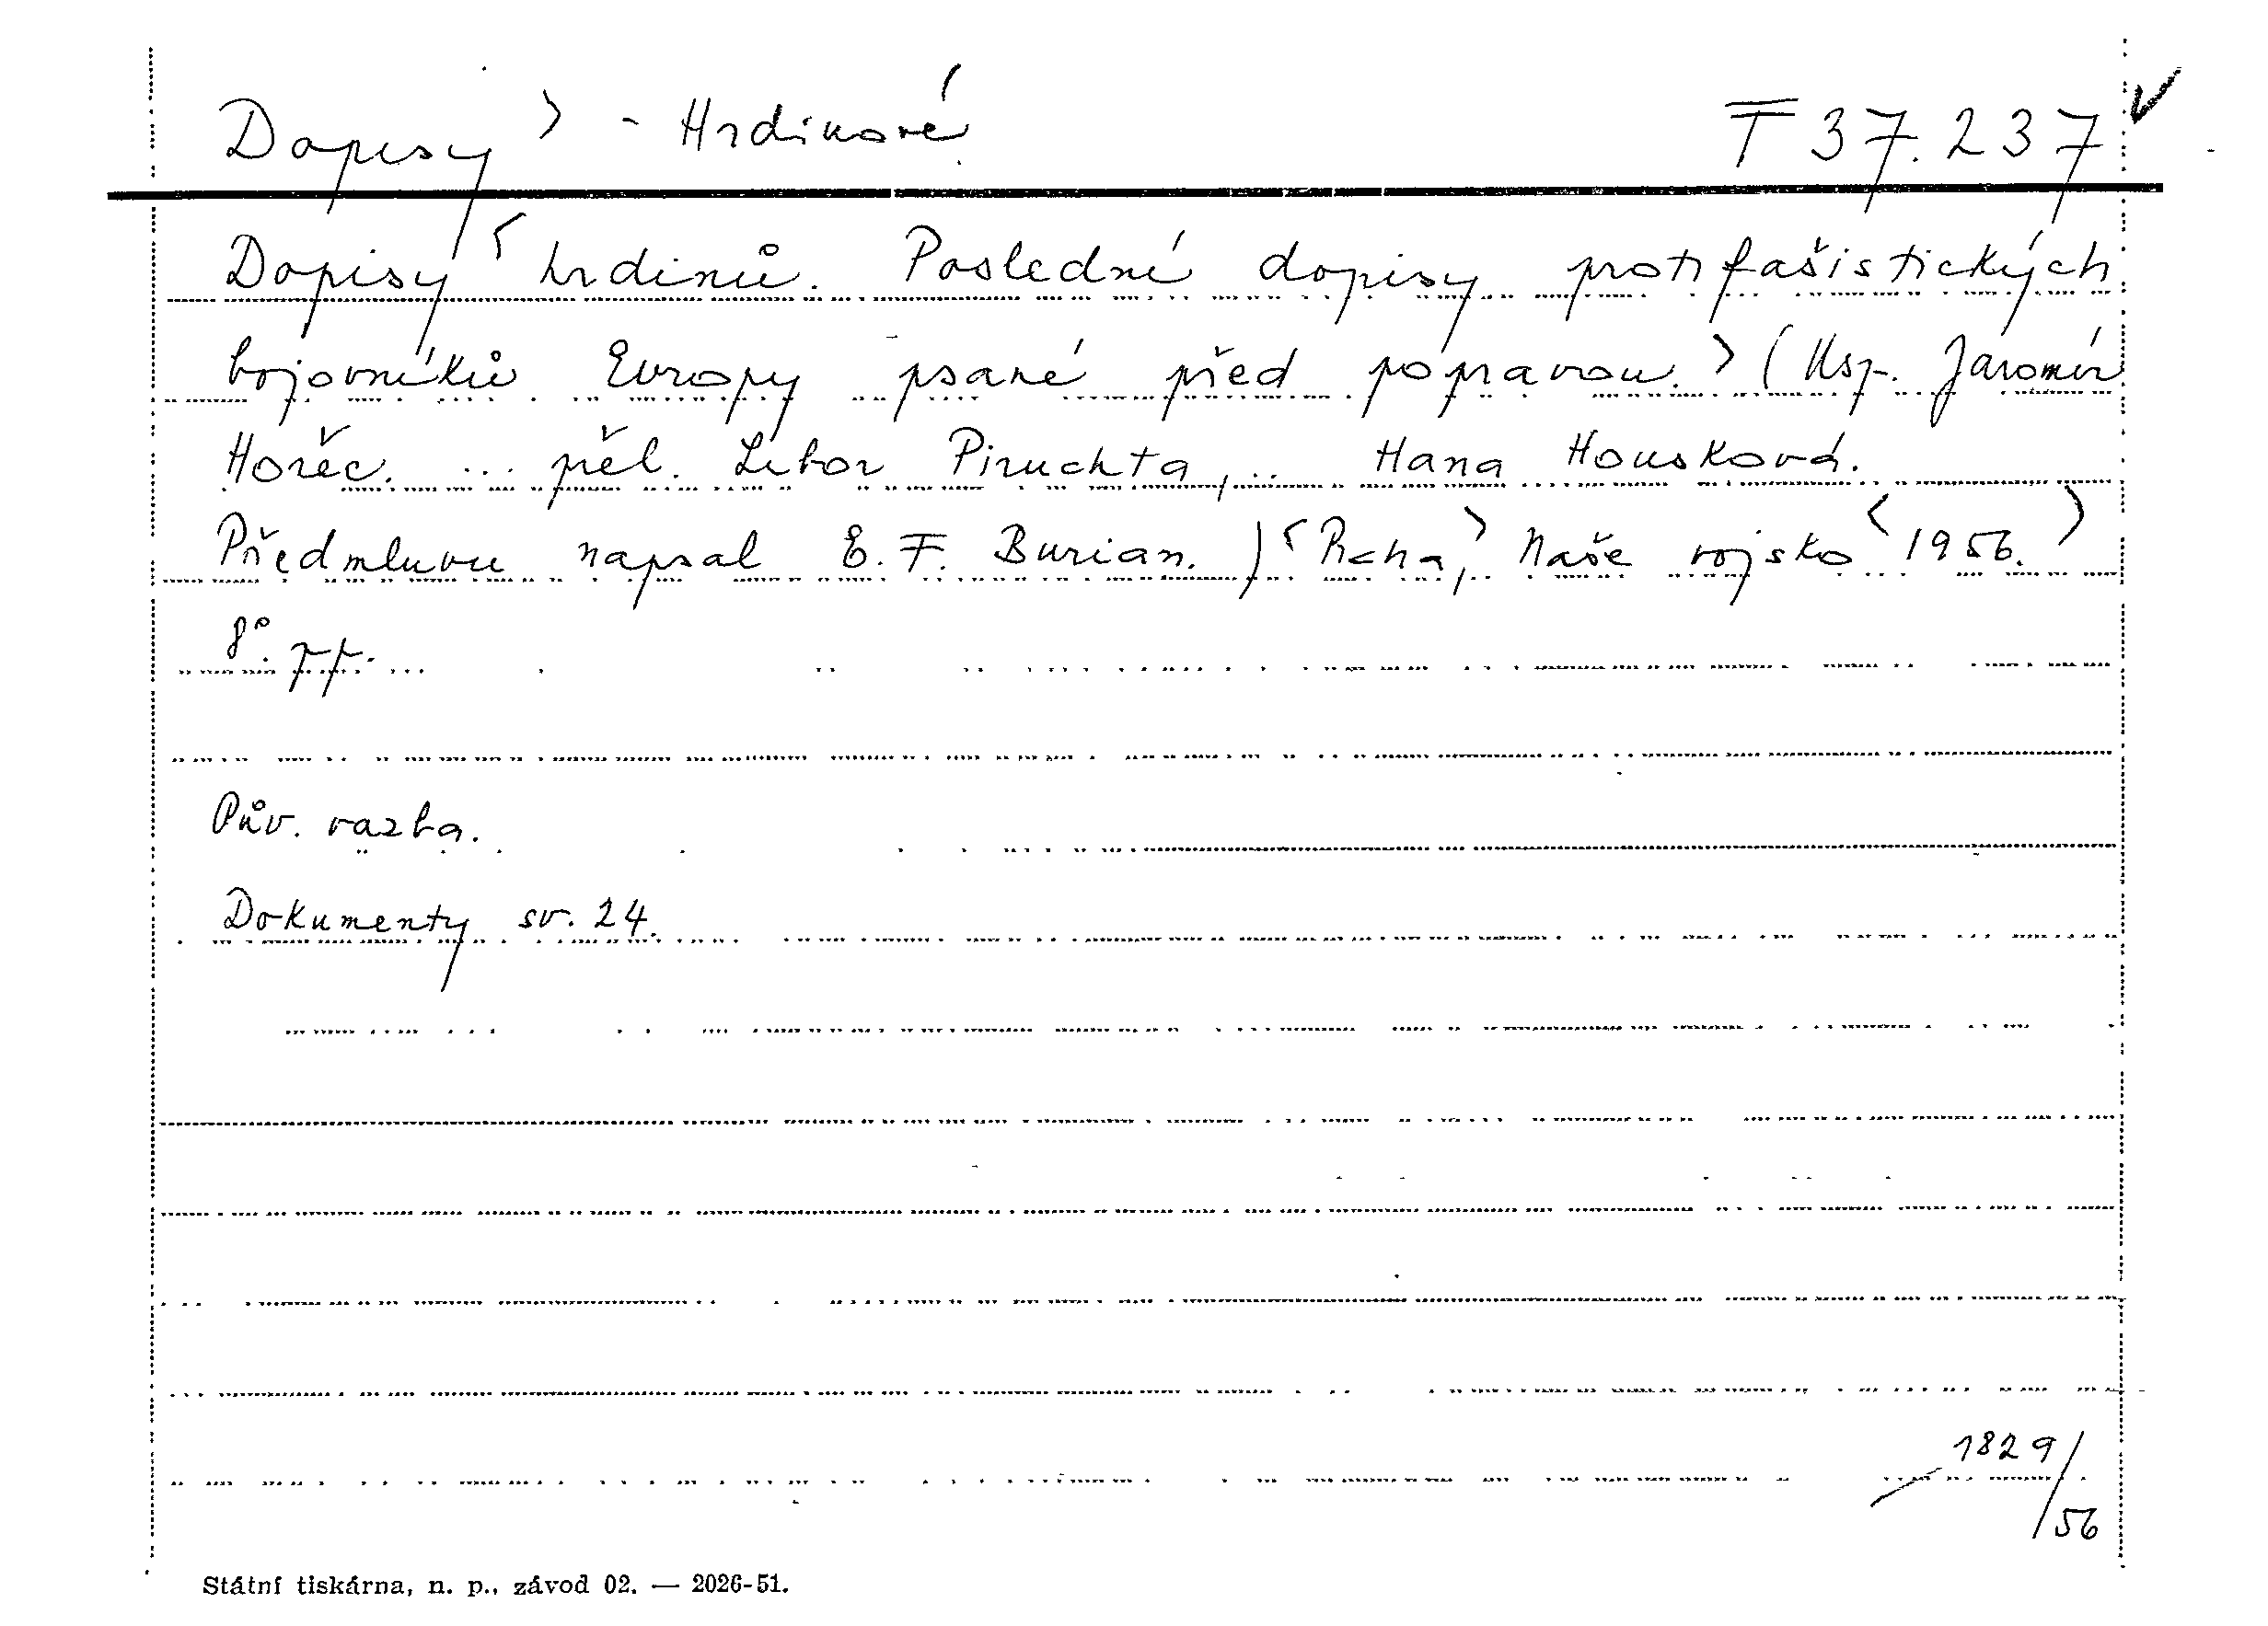 Dopisy > - Hrdinové T 37.237 ✓
Dopisy < hrdinů. Poslední dopisy protifašistických
bojovníků Evropy psané před popravou. > (Usp. Jaromír
Hořec. ... přel. Libor Piruchta, .. Hana Housková.
Předmluvu napsal E. F. Burian.) < Praha, > Naše vojsko < 1956. >
8°.
Pův. vazba.
Dokumenty sv. 24.
1829/56
Státní tiskárna, n. p., závod 02. — 2026-51.